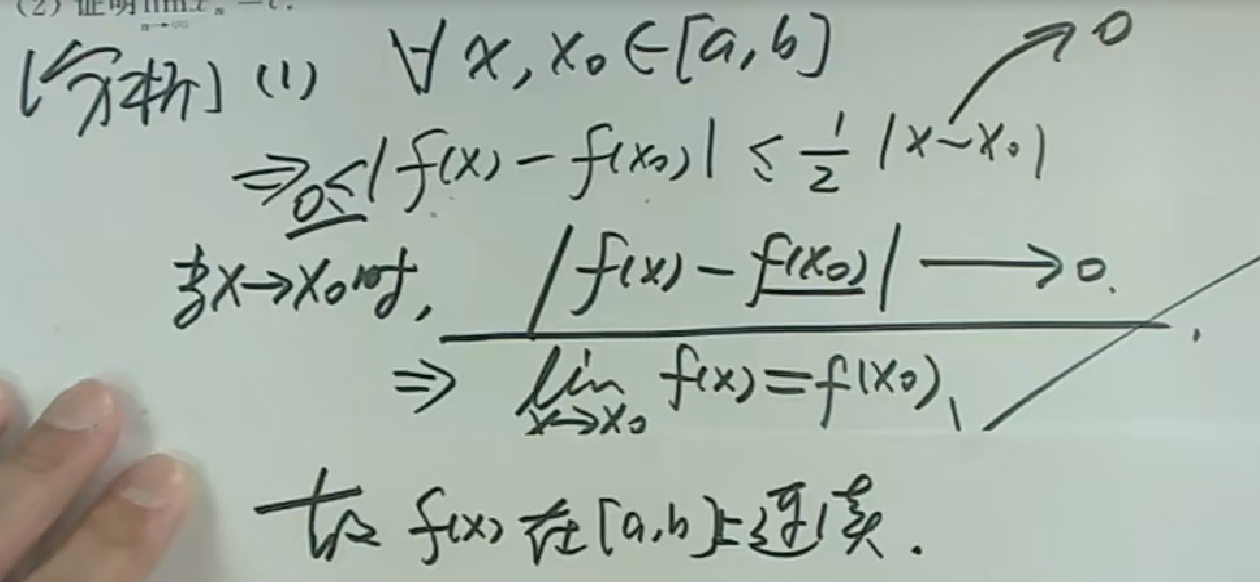 (2) 证明 lim x_n = c.
n→∞
[分析] (1) ∀ x, x₀ ∈ [a, b]
⇒ 0 ≤ |f(x) − f(x₀)| ≤ 1/2 |x − x₀| → 0
当x→x₀时, |f(x) − f(x₀)| ⟶ 0.
⇒ lim f(x) = f(x₀),
x→x₀
故 f(x) 在 [a, b] 上连续.